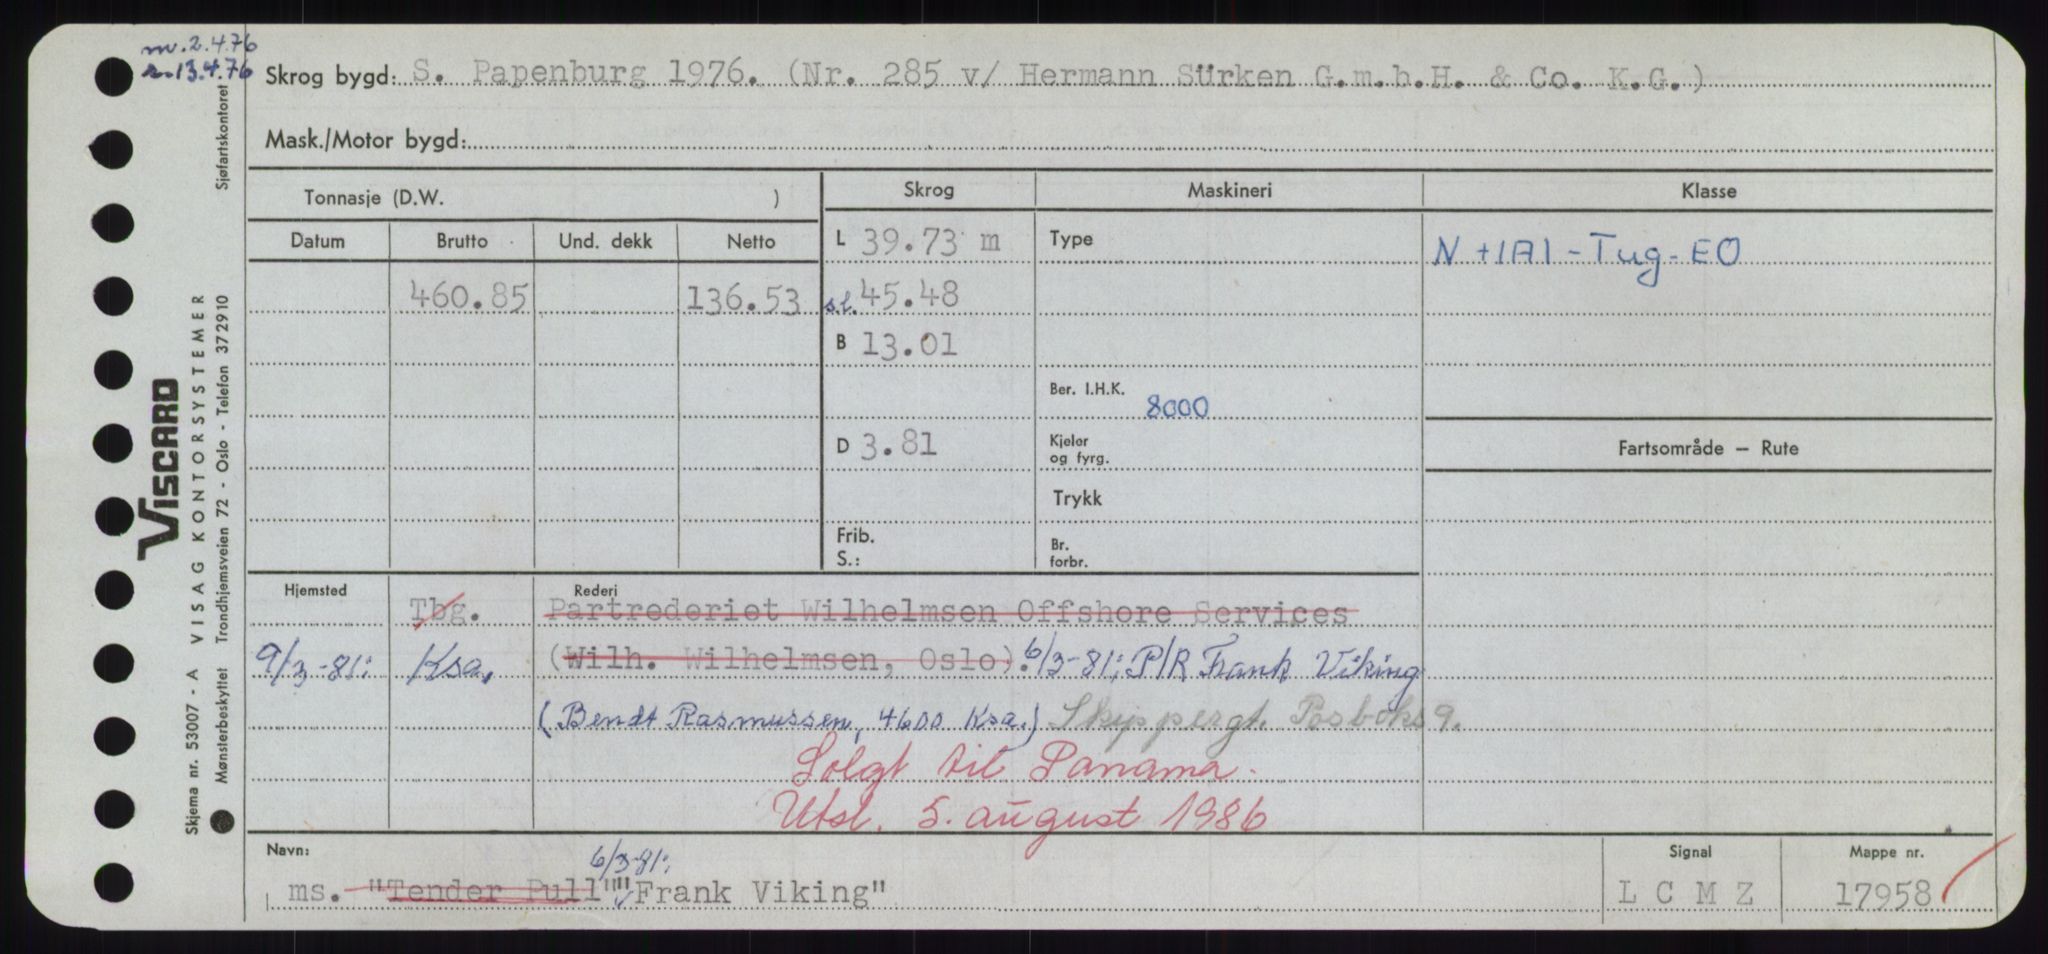 m. 2.4.76
r. 13.4.76
Skrog bygd: S. Papenburg 1976. (Nr. 285 v/ Hermann Sürken G.m.b.H. & Co. K.G.)
Mask./Motor bygd:
Tonnasje (D.W. )
Skrog
Maskineri
Klasse
Datum Brutto Und. dekk Netto
L 39.73 m
Type
N +1A1 - Tug - EO
460.85 136.53
s.l. 45.48
B 13.01
Ber. I.H.K. 8000
D 3.81
Kjeler
og fyrg.
Fartsområde – Rute
Trykk
Frib.
S.:
Br.
forbr.
Hjemsted
Rederi
Tbg. Partrederiet Wilhelmsen Offshore Services
9/3-81: Ksa. (Wilh. Wilhelmsen, Oslo). 6/3-81: P/R Frank Viking
(Bendt Rasmussen, 4600 Ksa.) Skyppergt. Posboks 9.
Solgt til Panama.
Utsl. 5. august 1986
Navn:
6/3-81:
ms. "Tender Pull" "Frank Viking"
Signal
L C M Z
Mappe nr.
17958
VISCARD
Skjema nr. 53007 - A VISAG KONTORSYSTEMER
Mønsterbeskyttet Trondhjemsveien 72 - Oslo - Telefon 372910 Sjøfartskontoret